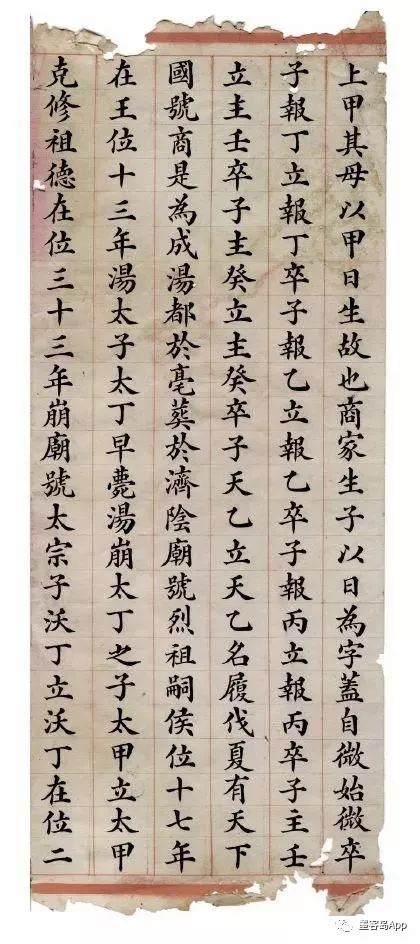 上甲其母以甲日生故也商家生子以日為字蓋自微始微卒
子報丁立報丁卒子報乙立報乙卒子報丙立報丙卒子主壬
立主壬卒子主癸立主癸卒子天乙立天乙名履伐夏有天下
國號商是為成湯都於亳葬於濟陰廟號烈祖嗣侯位十七年
在王位十三年湯太子太丁早薨湯崩太丁之子太甲立太甲
克修祖德在位三十三年崩廟號太宗子沃丁立沃丁在位二
墨客岛App